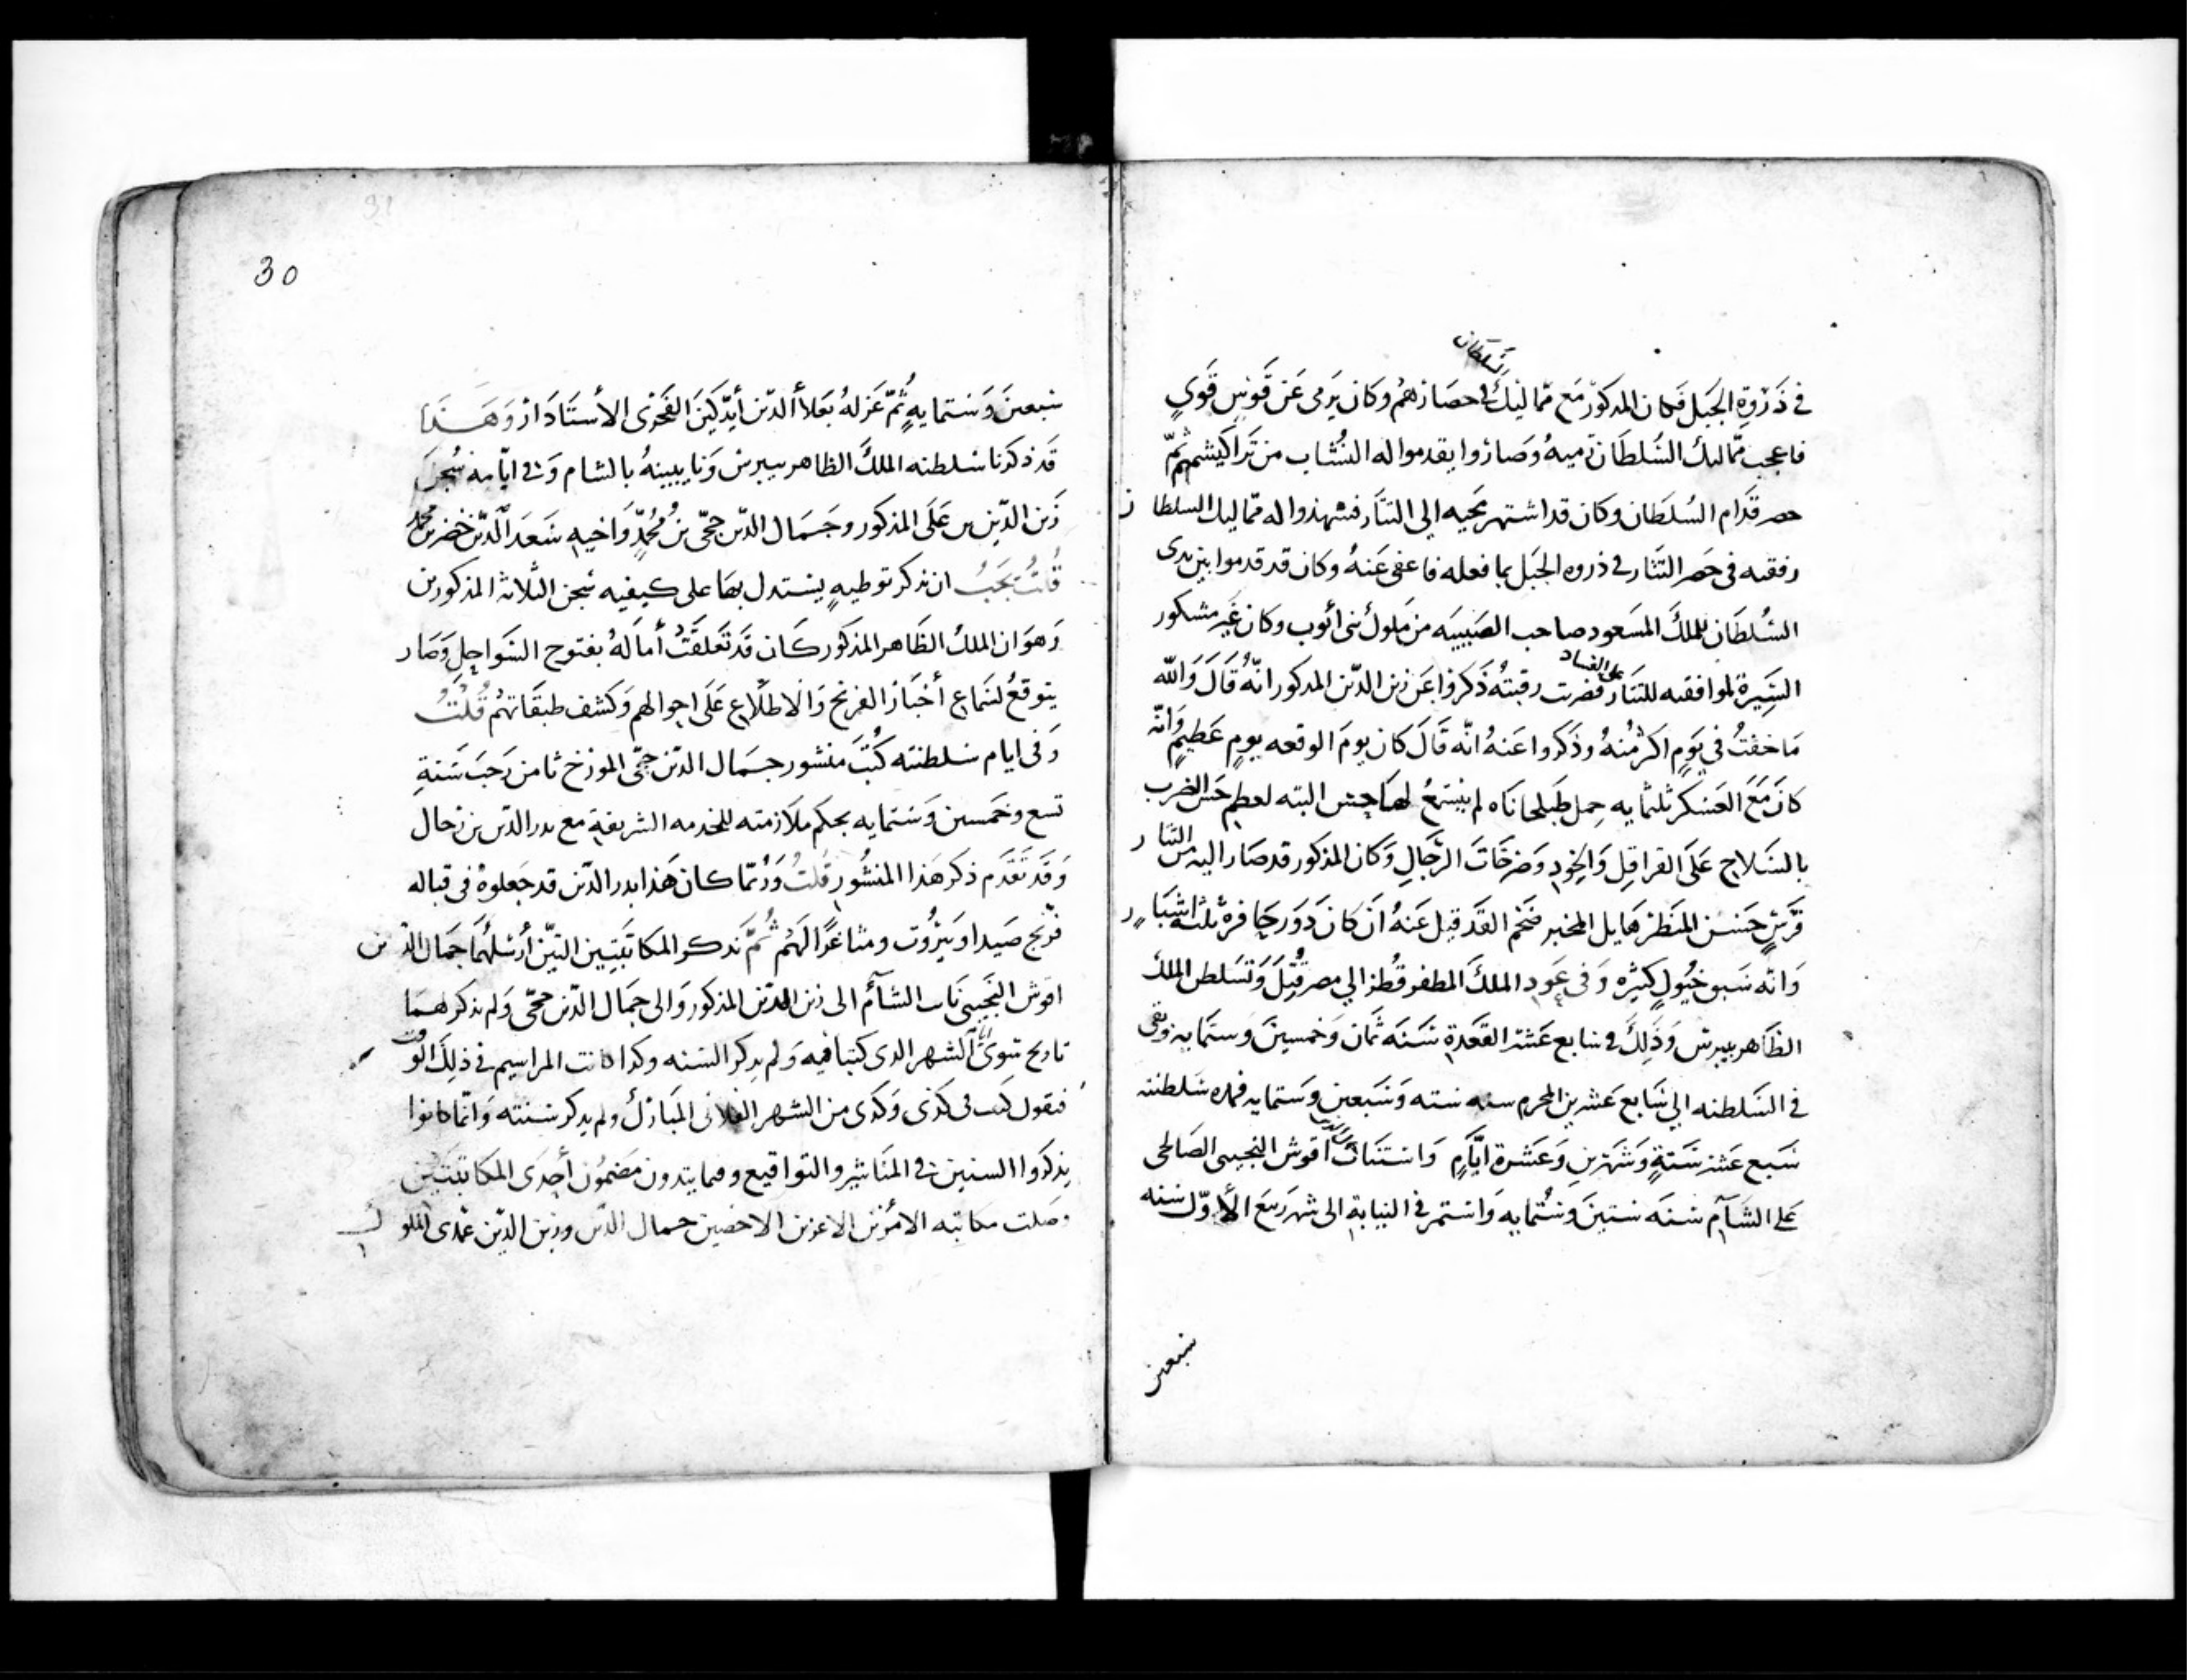 في ذروة الجبل فكان المذكور مع مماليك السلطان في حصارهم وكان يرمى عن قوس قوي
فاعجب مماليك السلطان رميه وصاروا يقدموا له النشاب من تراكيشهم ثم
حضر قدام السلطان وكان قد اشتهر مجيه الي التتار فشهدوا له مماليك السلطان
رفقته في حصر التتار في ذروه الجبل بما فعله فاعفى عنه وكان قد قدموا بين يدى
السلطان للملك المسعود صاحب الصبيبه من ملوك بنى أيوب وكان غير مشكور
السيرة لموافقته للتتار على الفساد فضربت رقبته ذكروا عن زين الدين المذكور انه قال والله
ما خفت في يوم اكثر منه وذكروا عنه انه قال كان يوم الوقعه يوم عظيم وانه
كان مع العسكر ثلثمايه حمل طبلخاناه لم يسمع لها حس البته لعظم حس الضرب
بالسلاح على القراقل والخود وصرخات الرجال وكان المذكور قد صار اليه من التتار
فرس حسن المنظر هايل المخبر ضخم القد قيل عنه أن كان دور حافره ثلثة اشبار
وانه سبق خيول كثيره وفى عود الملك المظفر قطز الي مصر قتل وتسلطن الملك
الظاهر بيبرس وذلك في سابع عشر القعدة سنه ثمان وخمسين وستمايه وبقى
في السلطنه الي سابع عشرين المحرم سنه سته وسبعين وستمايه فمده سلطنته
سبع عشر سنة وشهرين وعشرة ايام واستناب اقوش النجيبى الصالحى
على الشام سنه ستين وستمايه واستمر في النيابة الى شهر ربيع الأول سنه
سبعين
30
سبعين وستمايه ثم عزله بعلاء الدين أيدكين الفخرى الأستادار وهذا
قد ذكرنا سلطنه الملك الظاهر بيبرس ونايبينه بالشام وفى ايامه سجن
زين الدين بن على المذكور وجمال الدين حجى بن محمد واخيه سعد الدين خضر بن محمد
قلت يجب ان نذكر توطيه يستدل بها على كيفيه سجن الثلاثه المذكورين
وهو ان الملك الظاهر المذكور كان قد تعلقت أماله بفتوح السواحل وصار
يتوقع لسماع أخبار الفرنج والاطلاع على احوالهم وكشف طبقاتهم قلت
وفى ايام سلطنته كتب منشور جمال الدين حجى المورخ ثامن رجب سنة
تسع وخمسين وستمايه بحكم ملازمته للخدمه الشريفة مع بدر الدين بن رحال
وقد تقدم ذكر هذا المنشور قلت وربما كان هذا بدر الدين قد جعلوه فى قباله
فرنج صيدا وبيروت ومثاغرا لهم ثم نذكر المكاتبتين التين أرسلهما جمال الدين
اقوش النجيبى نايب الشآم الى زين الدين المذكور والى جمال الدين حجى ولم يذكر لهما
تاريخ سوى الشهر الدى كتبا فيه ولم يذكر السنه وكدا كانت المراسيم في ذلك الوقت
فيقول كتب فى كذى وكدى من الشهر الفلانى المبارك ولم يدكر سنته وانما كانوا
يذكروا السنين فى المناشير والتواقيع ومما يتدون مضمون أحدى المكاتبتين
وصلت مكاتبه الاميرين الاعزين الاخصين جمال الدين وزين الدين عمدى الملوك